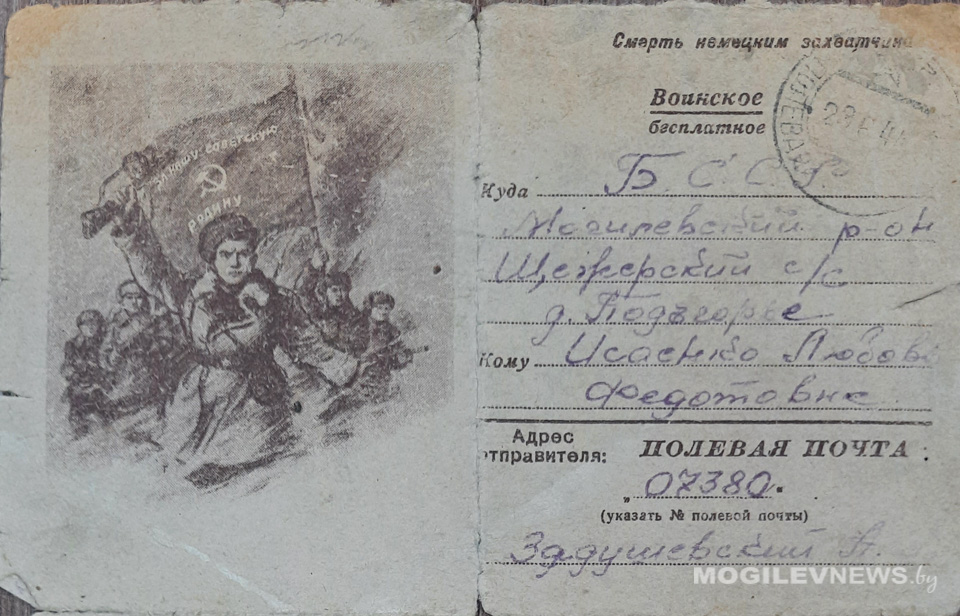 ЗА НАШУ СОВЕТСКУЮ
РОДИНУ
Смерть немецким захватчика
Воинское
бесплатное
Куда Б С С Р
Могилевский р-он
Щежерский с/с
д. Подъгорье
Кому Исаенко Любовь
Федотовне
Адрес
отправителя:
ПОЛЕВАЯ ПОЧТА
„07380“
(указать № полевой почты)
Задушевский А.
ПОЛЕВАЯ
MOGILEVNEWS.by